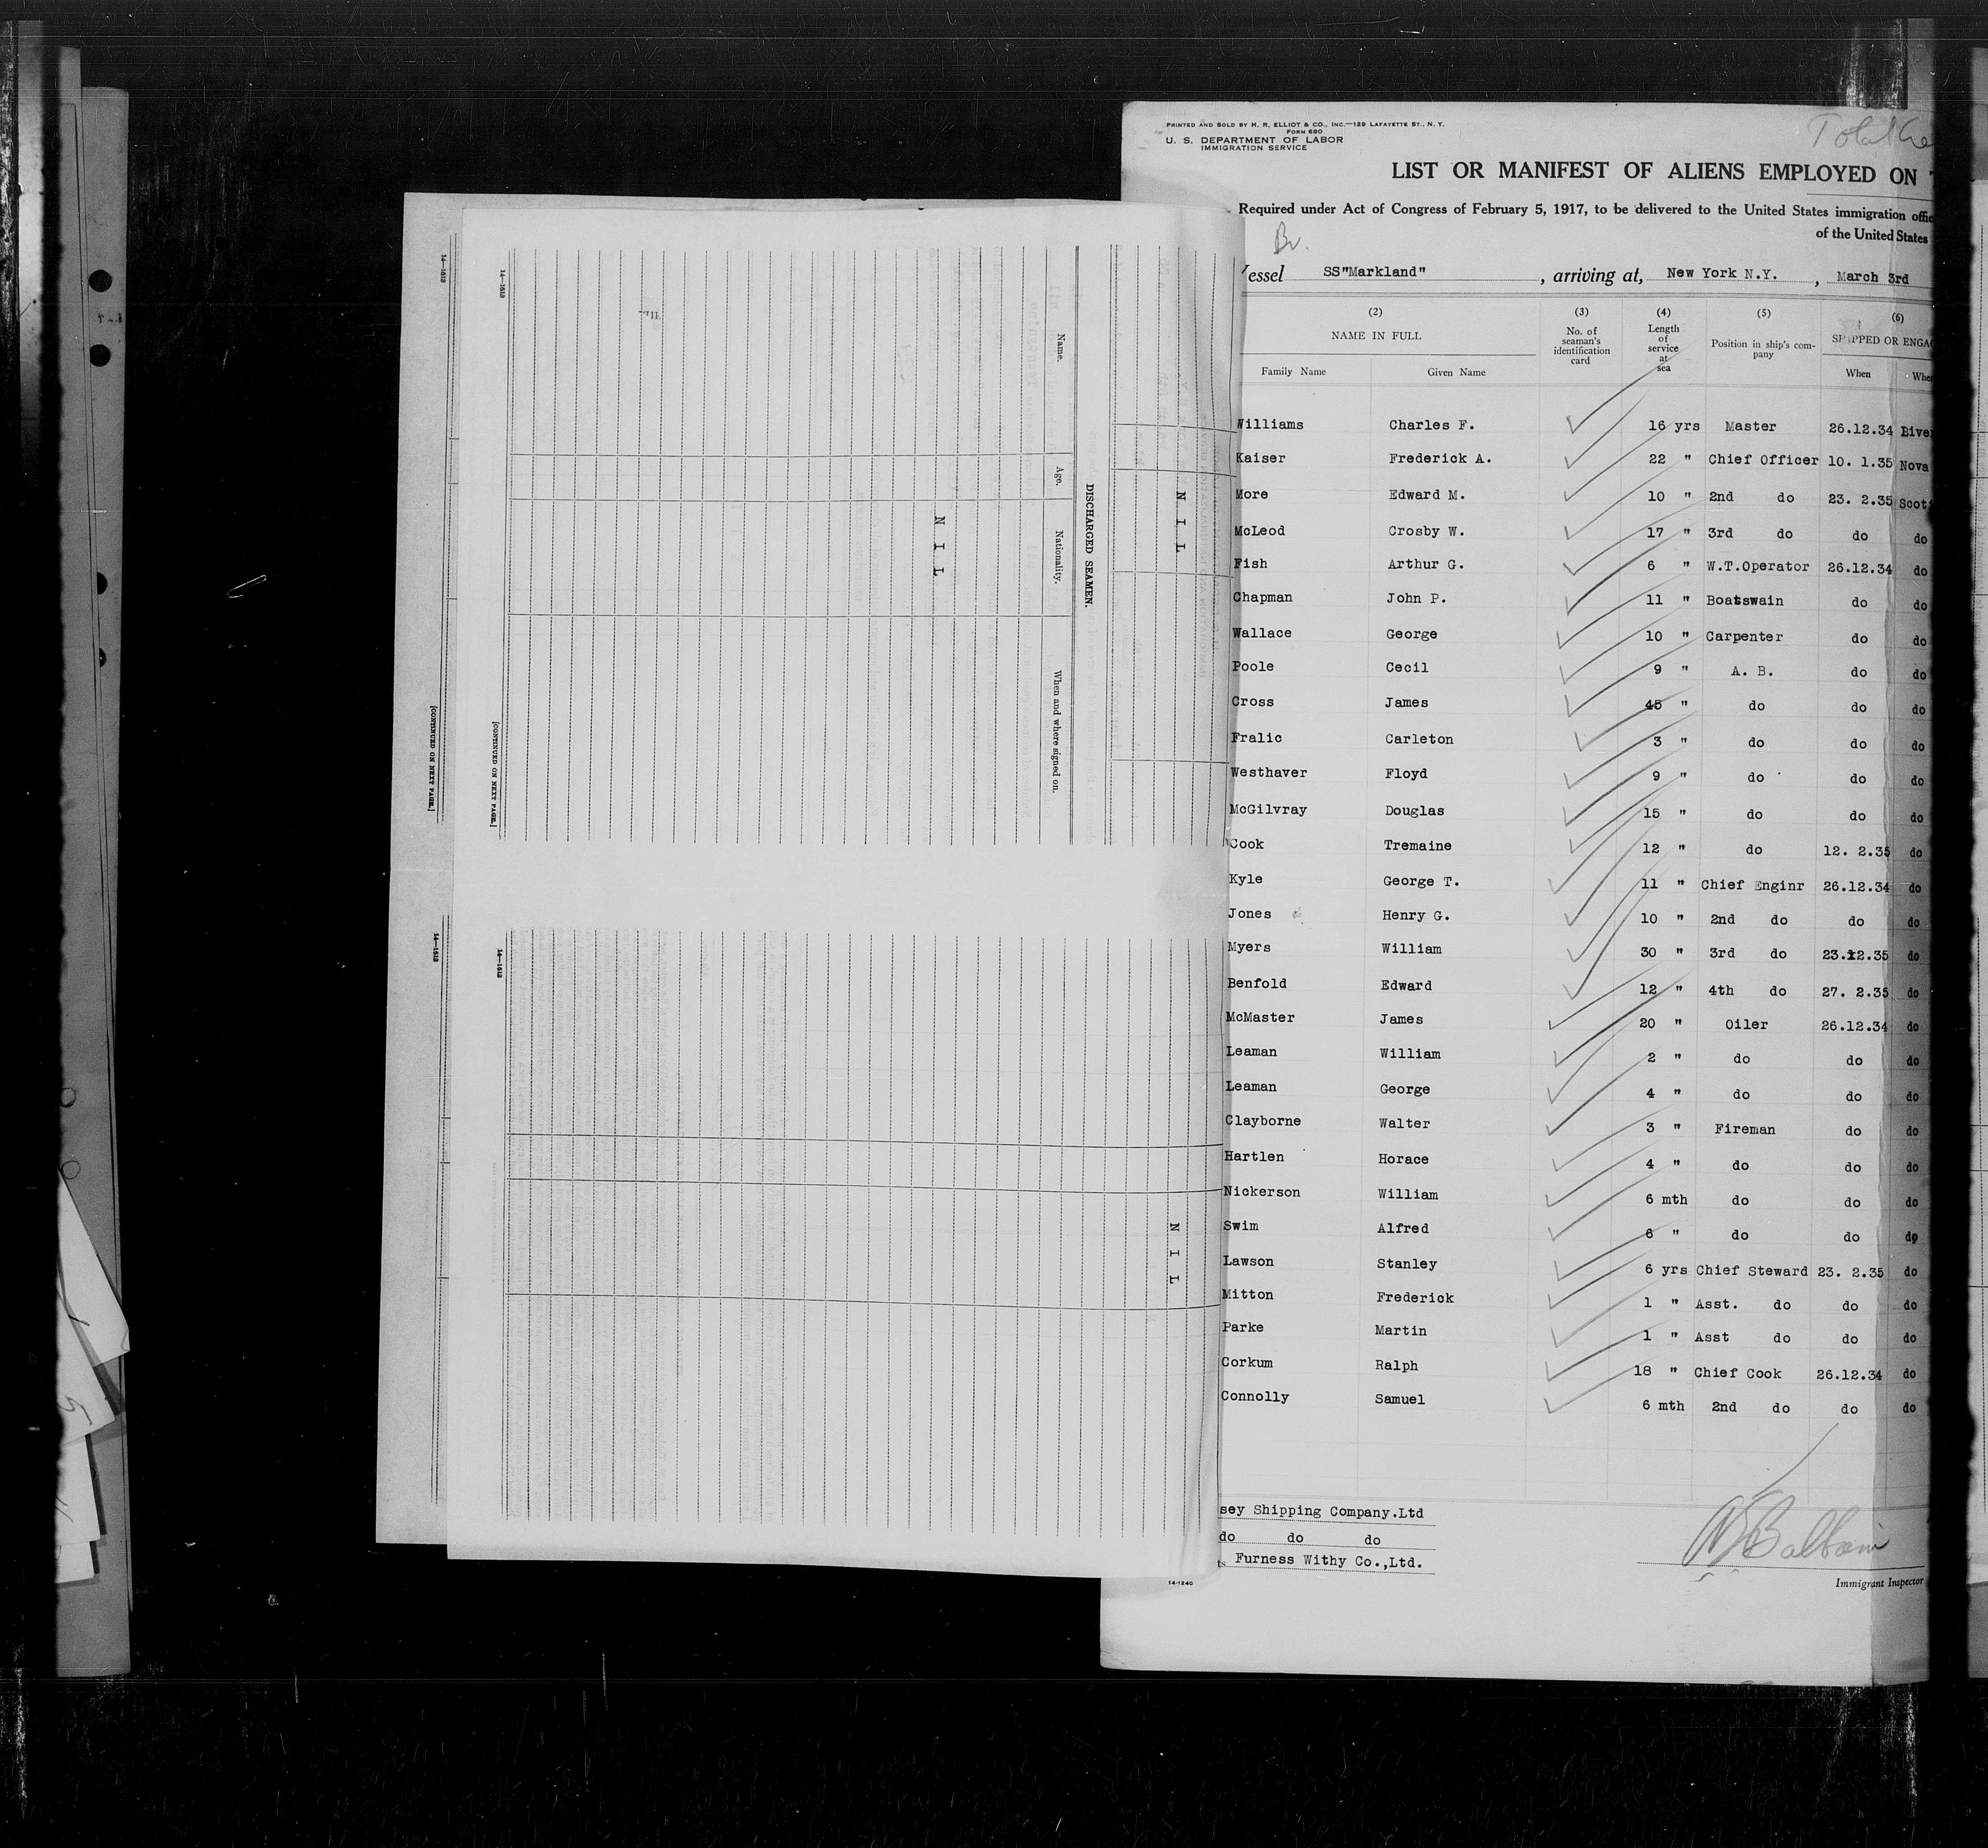 14—1613
[CONTINUED ON NEXT PAGE.]
14—1613
14—1613
[CONTINUED ON NEXT PAGE.]
14—1613
Name.
Age.
Nationality.
When and where signed on.
NIL
DISCHARGED SEAMEN.
NIL
NIL
PRINTED AND SOLD BY H. R. ELLIOT & CO., INC.—129 LAFAYETTE ST., N. Y.
FORM 680
U. S. DEPARTMENT OF LABOR
IMMIGRATION SERVICE
Total
LIST OR MANIFEST OF ALIENS EMPLOYED ON
Required under Act of Congress of February 5, 1917, to be delivered to the United States immigration
of the United States
Br.
Vessel SS"Markland" , arriving at, New York N.Y. , March 3rd
(2) (3) (4) (5) (6)
NAME IN FULL No. of seaman's identification card Length of service at sea Position in ship's company SHIPPED OR
Family Name Given Name When
Williams Charles F. 16 yrs Master 26.12.34
Kaiser Frederick A. 22 " Chief Officer 10. 1.35 Nova
More Edward M. 10 " 2nd do 23. 2.35
McLeod Crosby W. 17 " 3rd do do do
Fish Arthur G. 6 " W.T.Operator 26.12.34 do
Chapman John P. 11 " Boatswain do do
Wallace George 10 " Carpenter do do
Poole Cecil 9 " A. B. do do
Cross James 45 " do do do
Fralic Carleton 3 " do do do
Westhaver Floyd 9 " do do do
McGilvray Douglas 15 " do do do
Cook Tremaine 12 " do 12. 2.35 do
Kyle George T. 11 " Chief Enginr 26.12.34 do
Jones Henry G. 10 " 2nd do do do
Myers William 30 " 3rd do 23.12.35 do
Benfold Edward 12 " 4th do 27. 2.35 do
McMaster James 20 " Oiler 26.12.34 do
Leaman William 2 " do do do
Leaman George 4 " do do do
Clayborne Walter 3 " Fireman do do
Hartlen Horace 4 " do do do
Nickerson William 6 mth do do do
Swim Alfred 6 " do do do
Lawson Stanley 6 yrs Chief Steward 23. 2.35 do
Mitton Frederick 1 " Asst. do do do
Parke Martin 1 " Asst do do do
Corkum Ralph 18 " Chief Cook 26.12.34 do
Connolly Samuel 6 mth 2nd do do do
sey Shipping Company.Ltd
do do do
Furness Withy Co.,Ltd.
Immigrant Inspector
14-1240